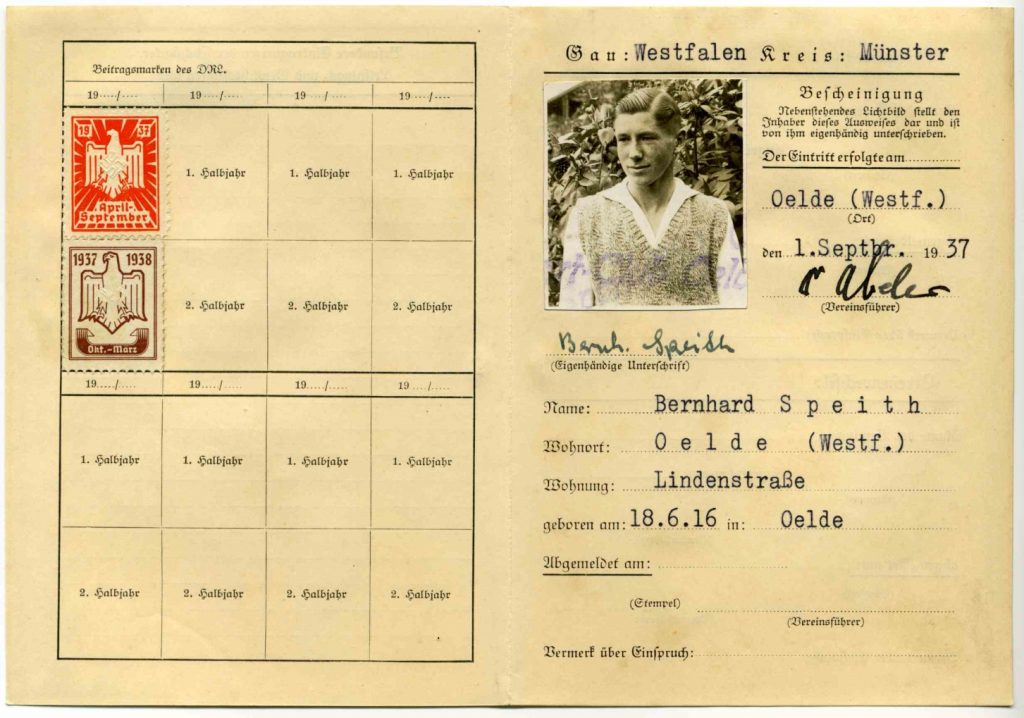 Beitragsmarken des DRL.
19...../..... 19...../..... 19...../..... 19...../.....
19 37
April-
September
1. Halbjahr 1. Halbjahr 1. Halbjahr
1937 1938
Okt.-März
2. Halbjahr 2. Halbjahr 2. Halbjahr
19...../..... 19...../..... 19...../..... 19...../.....
1. Halbjahr 1. Halbjahr 1. Halbjahr 1. Halbjahr
2. Halbjahr 2. Halbjahr 2. Halbjahr 2. Halbjahr
Gau: Westfalen Kreis: Münster
Bescheinigung
Nebenstehendes Lichtbild stellt den
Inhaber dieses Ausweises dar und ist
von ihm eigenhändig unterschrieben.
Der Eintritt erfolgte am
Oelde (Westf.)
(Ort)
den 1.Septbr. 1937
Abeler
(Vereinsführer)
Bernh. Speith
(Eigenhändige Unterschrift)
Name: Bernhard Speith
Wohnort: Oelde (Westf.)
Wohnung: Lindenstraße
geboren am: 18.6.16 in: Oelde
Abgemeldet am:
(Stempel)
(Vereinsführer)
Vermerk über Einspruch: